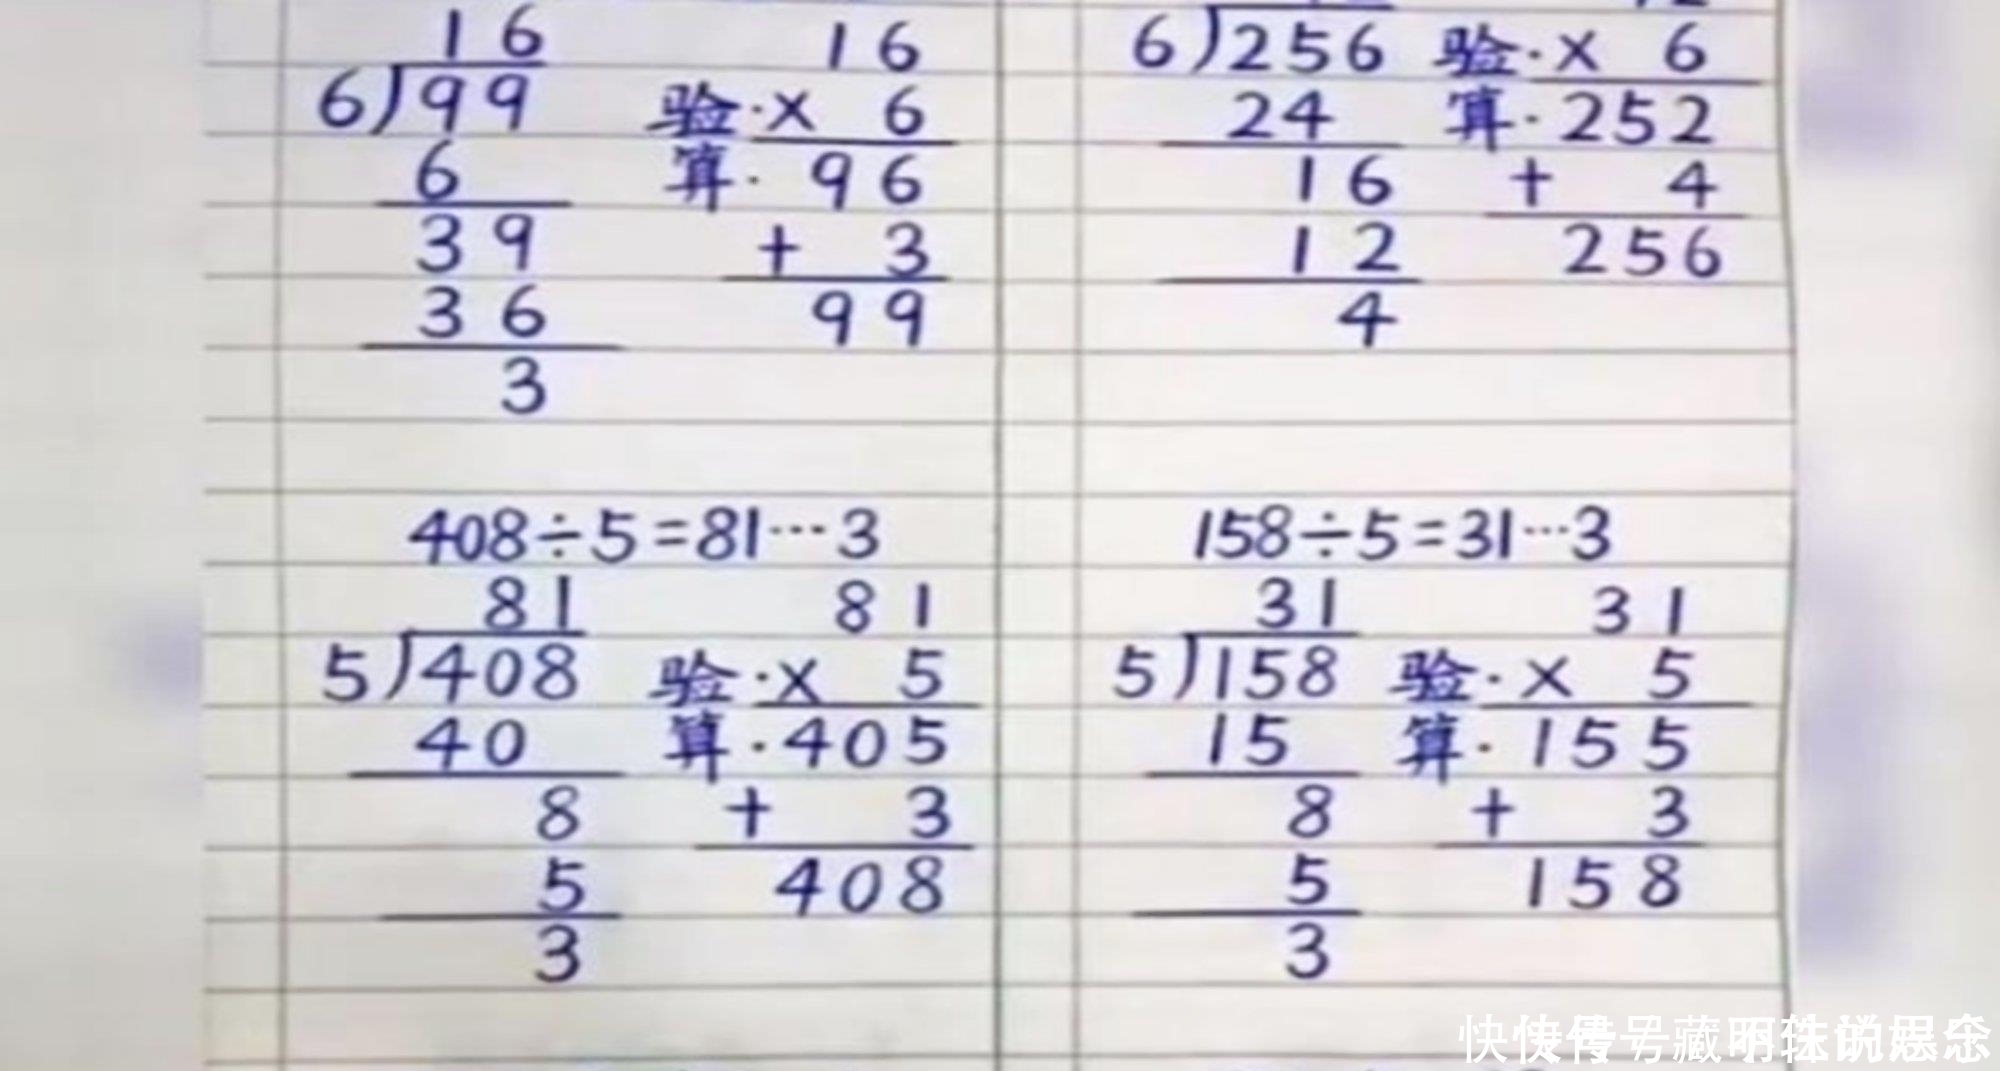 16 16
6)99 验·× 6
6 算· 96
39 + 3
36 99
3
6)256 验·× 6
24 算·252
16 + 4
12 256
4
408÷5=81…3
81 81
5)408 验·× 5
40 算·405
8 + 3
5 408
3
158÷5=31…3
31 31
5)158 验·× 5
15 算·155
8 + 3
5 158
3